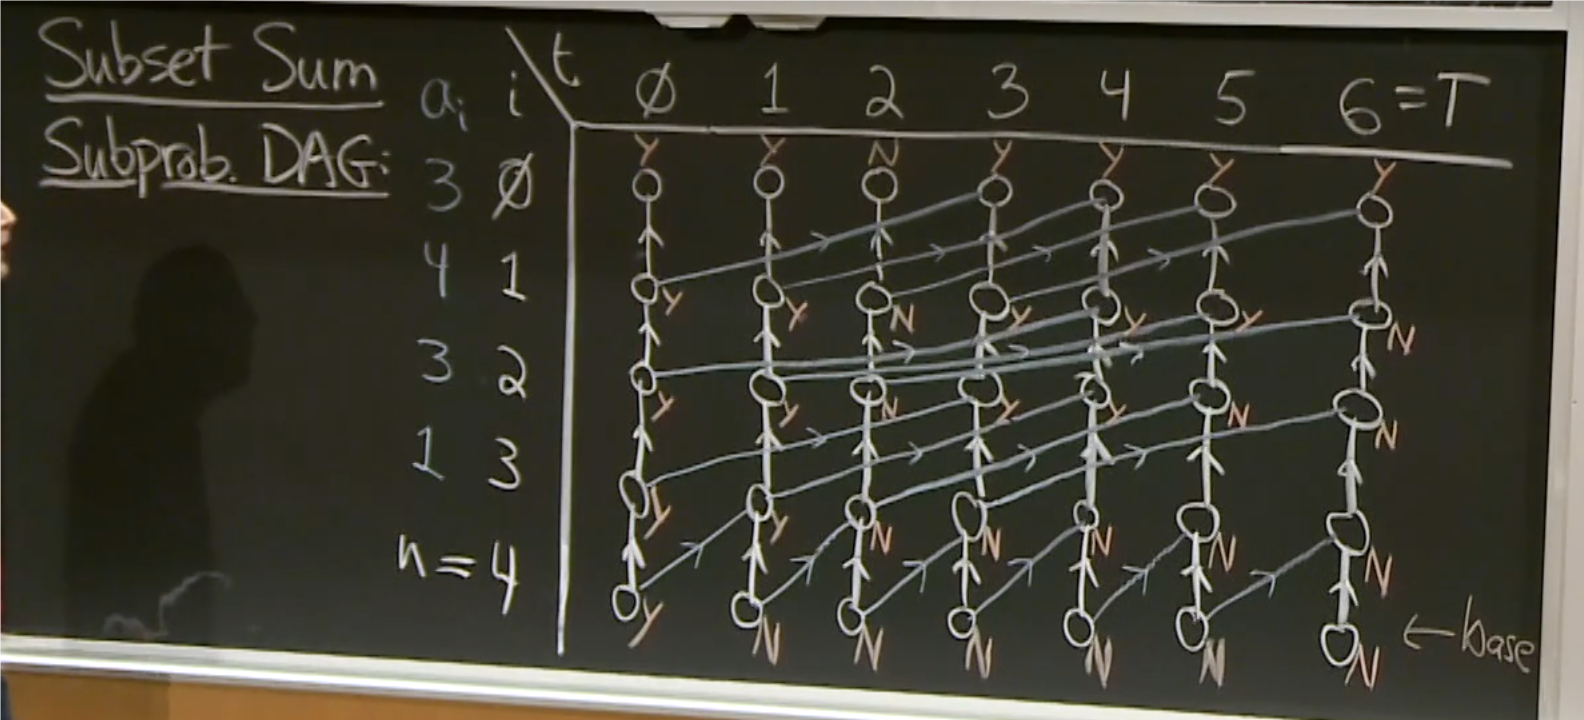 Subset Sum
Subprob. DAG:
aᵢ i \ t ∅ 1 2 3 4 5 6=T
Y Y N Y Y Y Y
3 ∅
4 1
Y Y N Y Y Y N
3 2
Y Y N Y Y N N
1 3
Y Y N N N N N
n=4
Y N N N N N N
← base